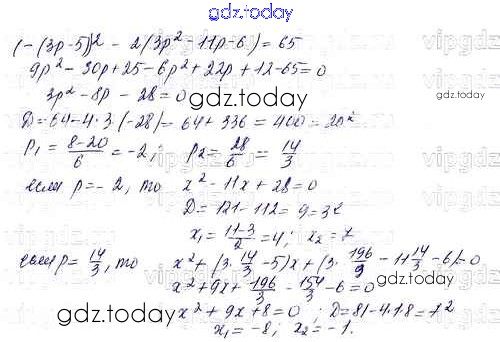 gdz.today
(-(3p-5))² - 2(3p² - 11p - 6) = 65
9p² - 30p + 25 - 6p² + 22p + 12 - 65 = 0
3p² - 8p - 28 = 0
gdz.today
D = 64 - 4·3·(-28) = 64 + 336 = 400 = 20²
p₁ = (8-20)/6 = -2; p₂ = 28/6 = 14/3
если p = -2, то x² - 11x + 28 = 0
D = 121 - 112 = 9 = 3²
x₁ = (11-3)/2 = 4; x₂ = 7
если p = 14/3, то x² + (3·14/3 - 5)x + (3·196/9 - 11·14/3 - 6) = 0
x² + 9x + 196/3 - 154/3 - 6 = 0
gdz.today
x² + 9x + 8 = 0; D = 81 - 4·1·8 = 7²
x₁ = -8; x₂ = -1.
gdz.today